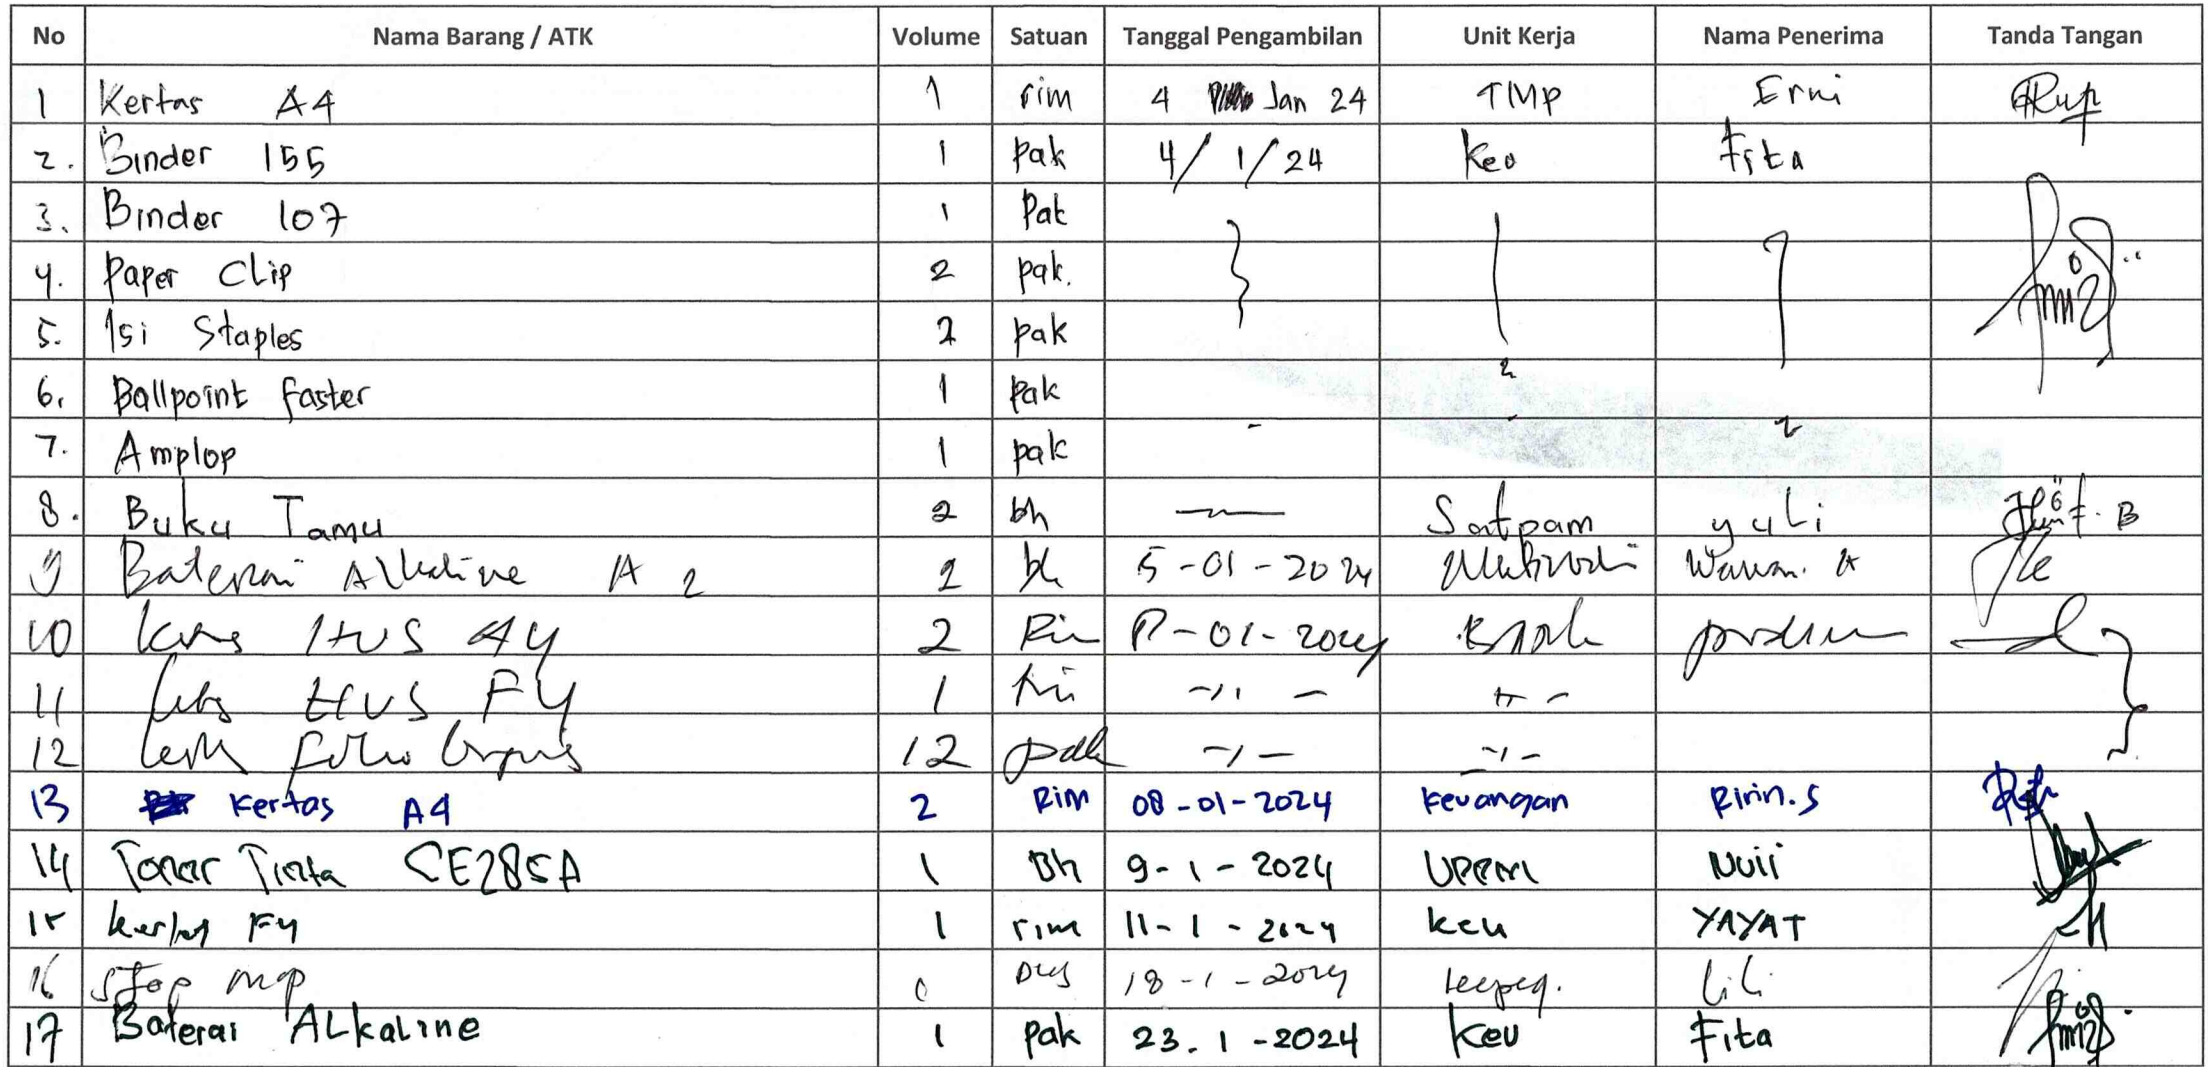 No Nama Barang / ATK Volume Satuan Tanggal Pengambilan Unit Kerja Nama Penerima Tanda Tangan
1 Kertas A4 1 rim 4 Jan 24 TMP Erni
2. Binder 155 1 pak 4/1/24 Keu Fita
3. Binder 107 1 Pak
4. Paper Clip 2 pak.
5. Isi Staples 2 pak
6. Ballpoint faster 1 pak
7. Amplop 1 pak
8. Buku Tamu 2 bh Satpam yuli
9 Baterai Alkaline A 2 2 bh 5-01-2024 Wawan. A
10 HVS A4 2 Rim 8-01-2024
11 HVS F4 1
12 folio 12 pak
13 Kertas A4 2 Rim 08-01-2024 Keuangan Ririn.S
14 Toner Tinta CE285A 1 Bh 9-1-2024 Nuii
15 kertas F4 1 rim 11-1-2024 keu YAYAT
16 stop map Dus 18-1-2024 kepeg. Lili
17 Baterai ALkaline 1 pak 23.1-2024 Keu Fita